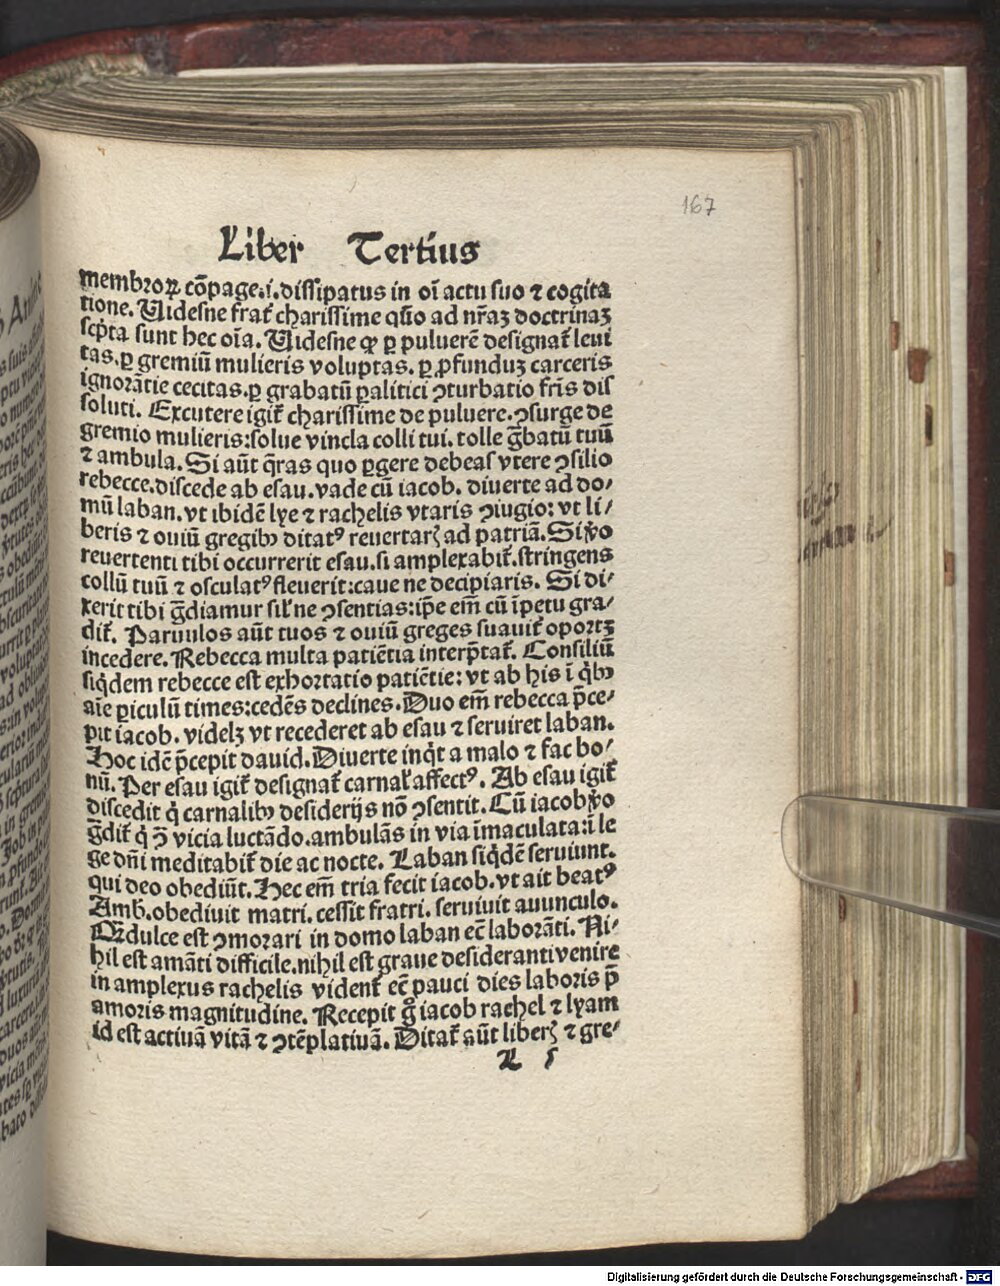 167
Liber Tertius
membroꝝ cōpage.i.dissipatus in oī actu suo ⁊ cogita
tione. Uidesne frat᷑ charissime qūo ad nr̄aꝫ doctrinaꝫ
scp̄ta sunt hec oīa. Uidesne ꝙ ꝑ puluerē designat᷑ leui
tas.ꝑ gremiū mulieris voluptas.ꝑ ꝓfunduꝫ carceris
ignorātie cecitas.ꝑ grabatū ꝑalitici ꝯturbatio fr̄is dis
soluti. Excutere igit᷑ charissime de puluere.ꝯsurge de
gremio mulieris:solue vincla colli tui. tolle g̃batū tuū
⁊ ambula. Si aūt q̄ras quo ꝑgere debeas vtere ꝯsilio
rebecce.discede ab esau.vade cū iacob. diuerte ad do⸗
mū laban.vt ibidē lye ⁊ rachelis vtaris ꝯiugio: vt li⸗
beris ⁊ ouiū gregibꝰ ditatꝰ reuertarꝭ ad patriā. Si v̄o
reuertenti tibi occurrerit esau.si amplexabit᷑.stringens
collū tuū ⁊ osculatꝰ fleuerit:caue ne decipiaris. Si di⸗
xerit tibi g̃diamur sil᷑ ne ꝯsentias:ip̄e em̄ cū īpetu gra⸗
dit᷑. Paruulos aūt tuos ⁊ ouiū greges suauit᷑ oportꝫ
incedere. Rebecca multa patiētia interp̄tat᷑. Consiliū
siq̇dem rebecce est exhortatio patiētie: vt ab his ī q̇bꝰ
aīe ꝑiculū times:cedēs declines. Duo em̄ rebecca p̄ce⸗
pit iacob. videlꝫ vt recederet ab esau ⁊ seruiret laban.
Hoc idē p̄cepit dauid. Diuerte inq̇t a malo ⁊ fac bo⸗
nū. Per esau igit᷑ designat᷑ carnal᷑ affectꝰ. Ab esau igit᷑
discedit q̇ carnalibꝰ desiderijs nō ꝯsentit. Cū iacob v̄o
g̃dit᷑ q̇ ꝯ̄ vicia luctādo.ambulās in via īmaculata:ī le
ge dn̄i meditabit᷑ die ac nocte. Laban siq̇dē seruiunt.
qui deo obediūt. Hec em̄ tria fecit iacob.vt ait beatꝰ
Amb̄.obediuit matri. cessit fratri. seruiuit auunculo.
dulce est ꝯmorari in domo laban ec̄ laborāti. Ni⸗
hil est amāti difficile.nihil est graue desideranti venire
in amplexus rachelis vident᷑ ec̄ pauci dies laboris p̄
amoris magnitudine. Recepit g̊ iacob rachel ⁊ lyam
id est actiuā vitā ⁊ ꝯtēplatiuā. Ditat᷑ aūt liberꝭ ⁊ gre⸗
Digitalisierung gefördert durch die Deutsche Forschungsgemeinschaft - DFG